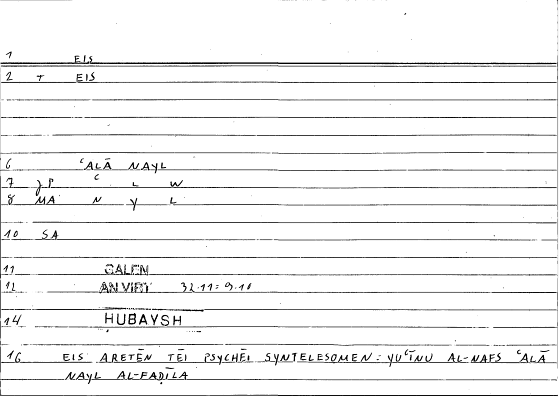 1 EIS
2 T EIS
6 ʿALĀ NAYL
7 JP ʿ L W
8 MA N Y L
10 SA
11 GALEN
12 AN VIRT 32.11 : 9.11
14 HUBAYSH
16 EIS ARETĒN TĒI PSYCHĒI SYNTELESOMEN : YUʿĪNU AL-NAFS ʿALĀ
NAYL AL-FAḌĪLA